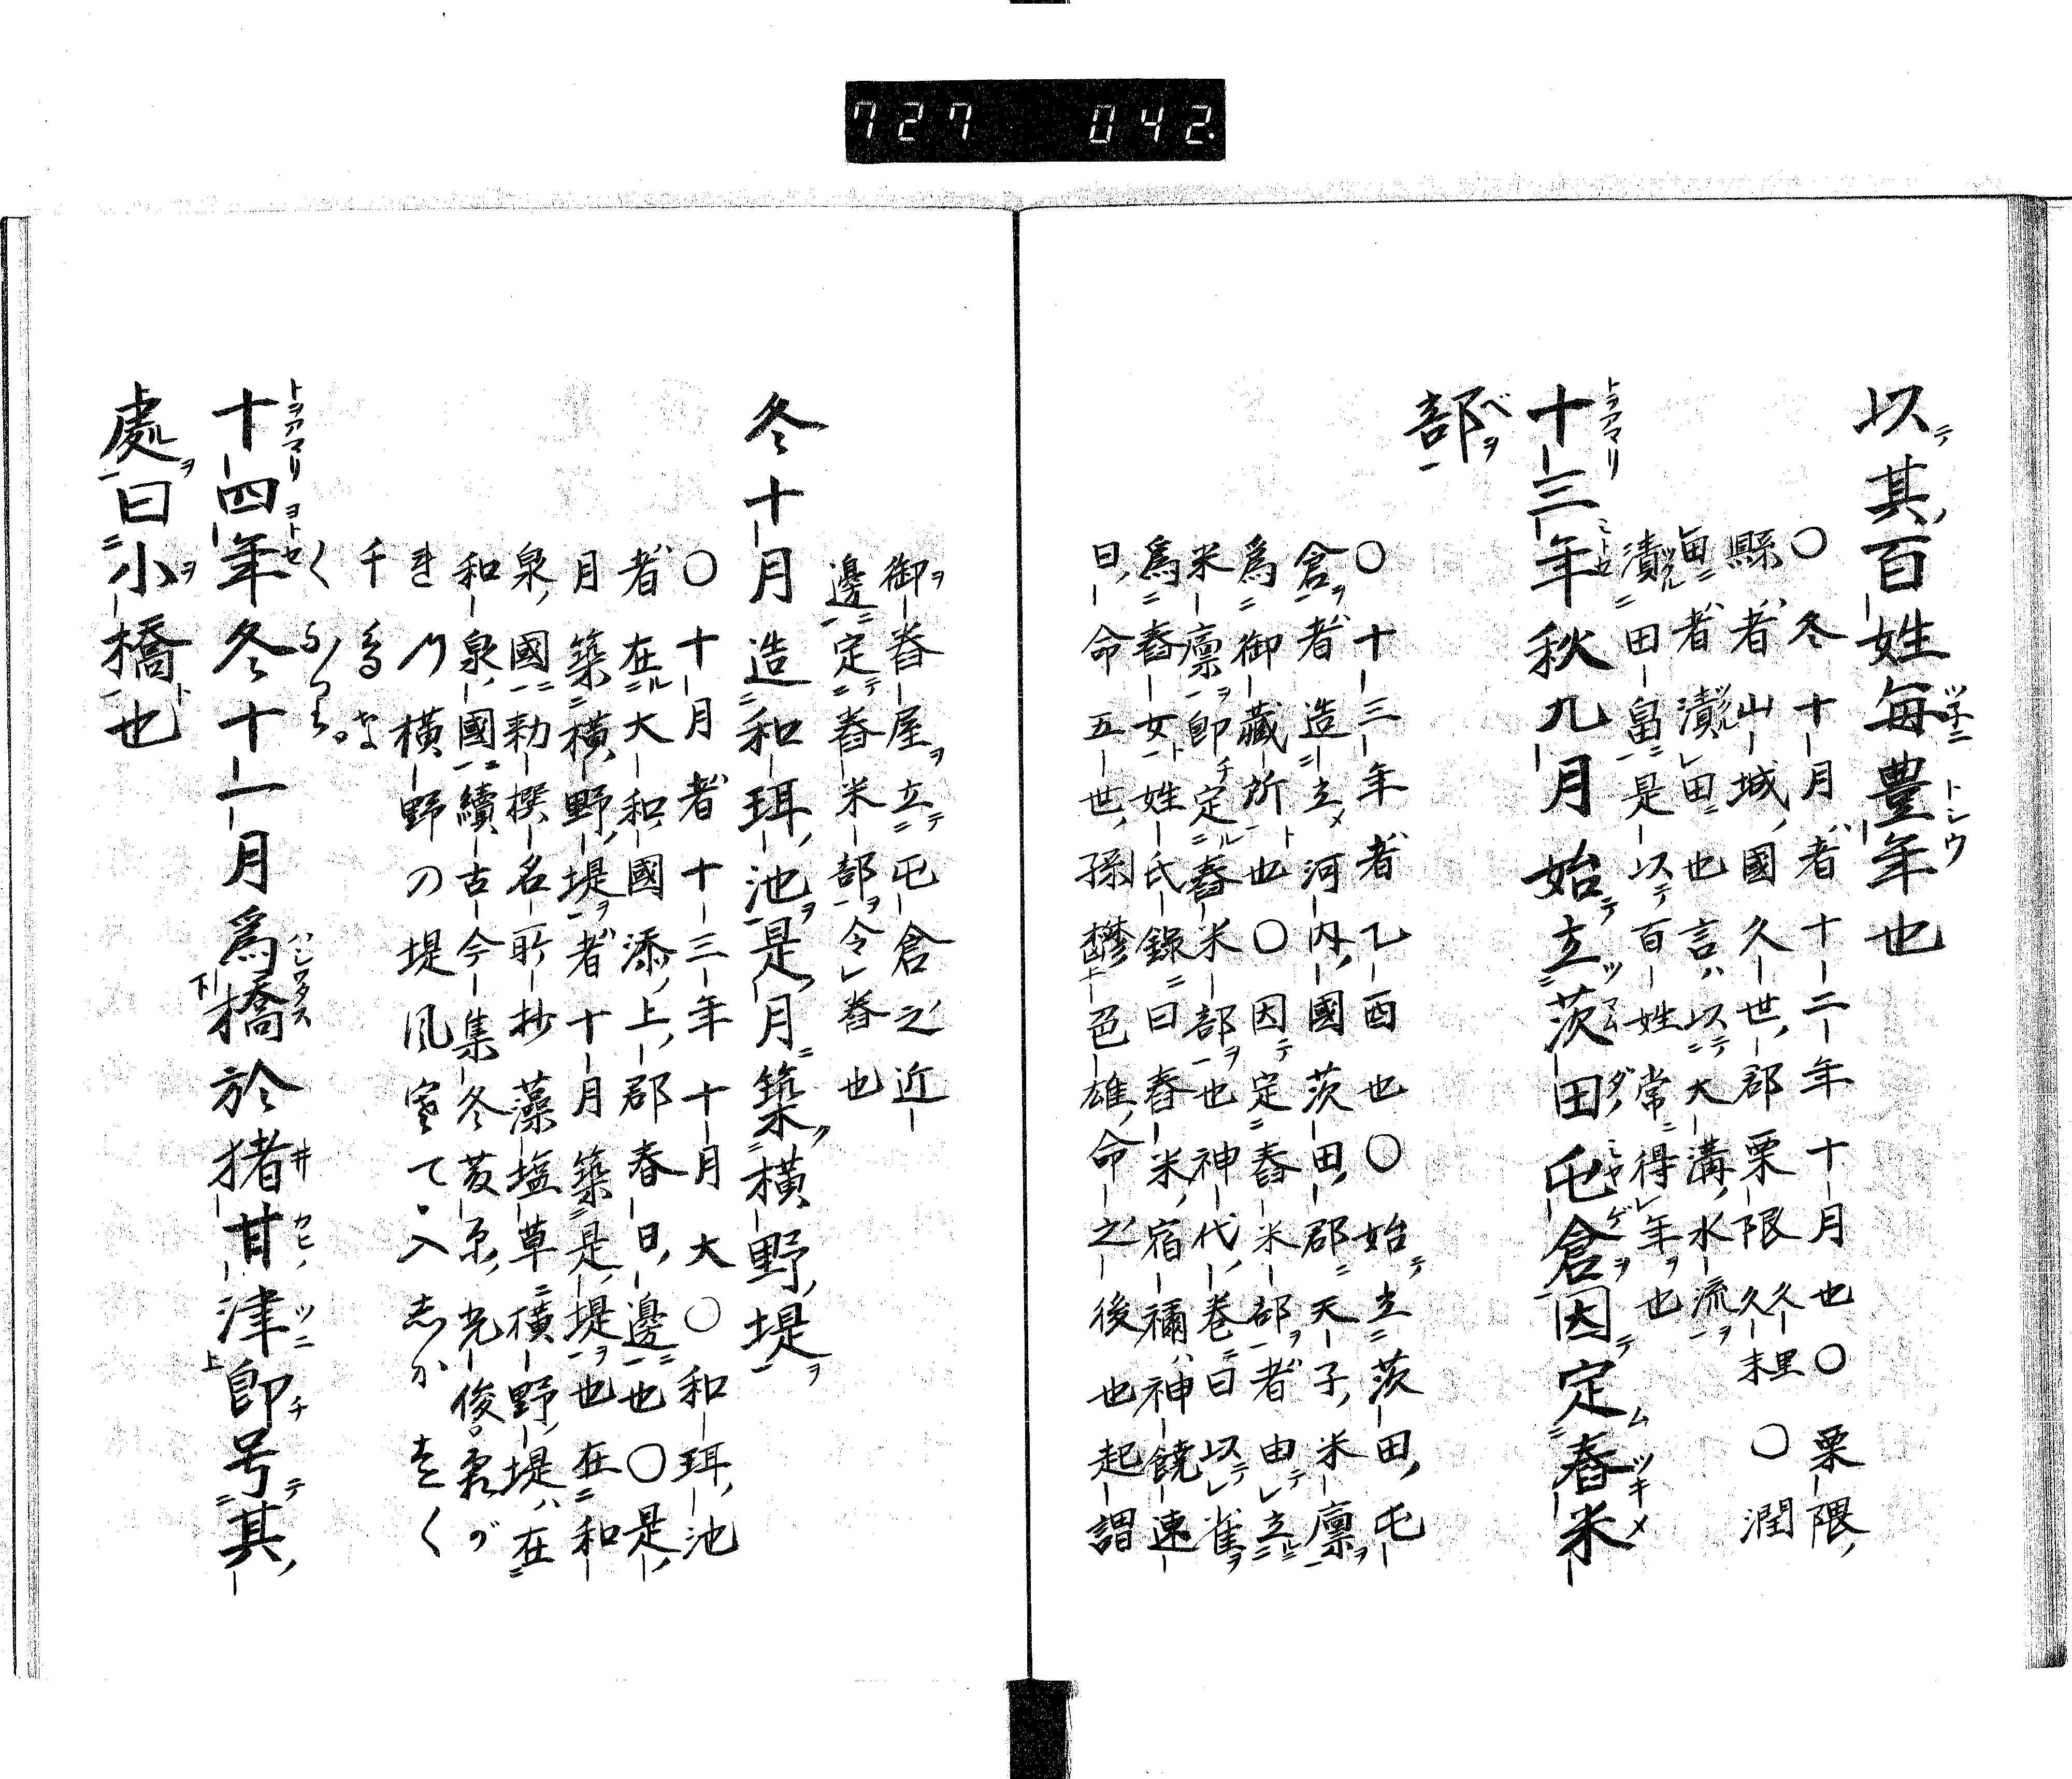 727 042.
以其百姓毎豊年也
〇冬十月者十二年十月也〇栗隈
縣者山城國久世郡栗隈久里久末〇潤
田者漬田也言以大溝水流
漬田畠是以百姓常得年也
十三年秋九月始立茨田屯倉因定舂米
部
〇十三年者乙酉也〇始立茨田屯
倉者造立河内國茨田郡天子米廩
爲御藏所也〇因定舂米部者由立
米廩即定舂米部也神代巻曰以雀
爲舂女姓氏錄曰舂米宿禰神饒速
日命五世孫欝色雄命之後也起謂
御舂屋立屯倉之近
邊定舂米部令舂也
冬十月造和珥池是月築橫野堤
〇十月者十三年十月大〇和珥池
者在大和國添上郡春日邊也〇是
月築橫野堤者十月築是堤也在和
泉國勅撰名所抄藻塩草橫野堤在
和泉國續古今集冬藤原光俊
橫野の堤風寒て入
千鳥
十四年冬十一月爲橋於猪甘津即号其
處曰小橋也